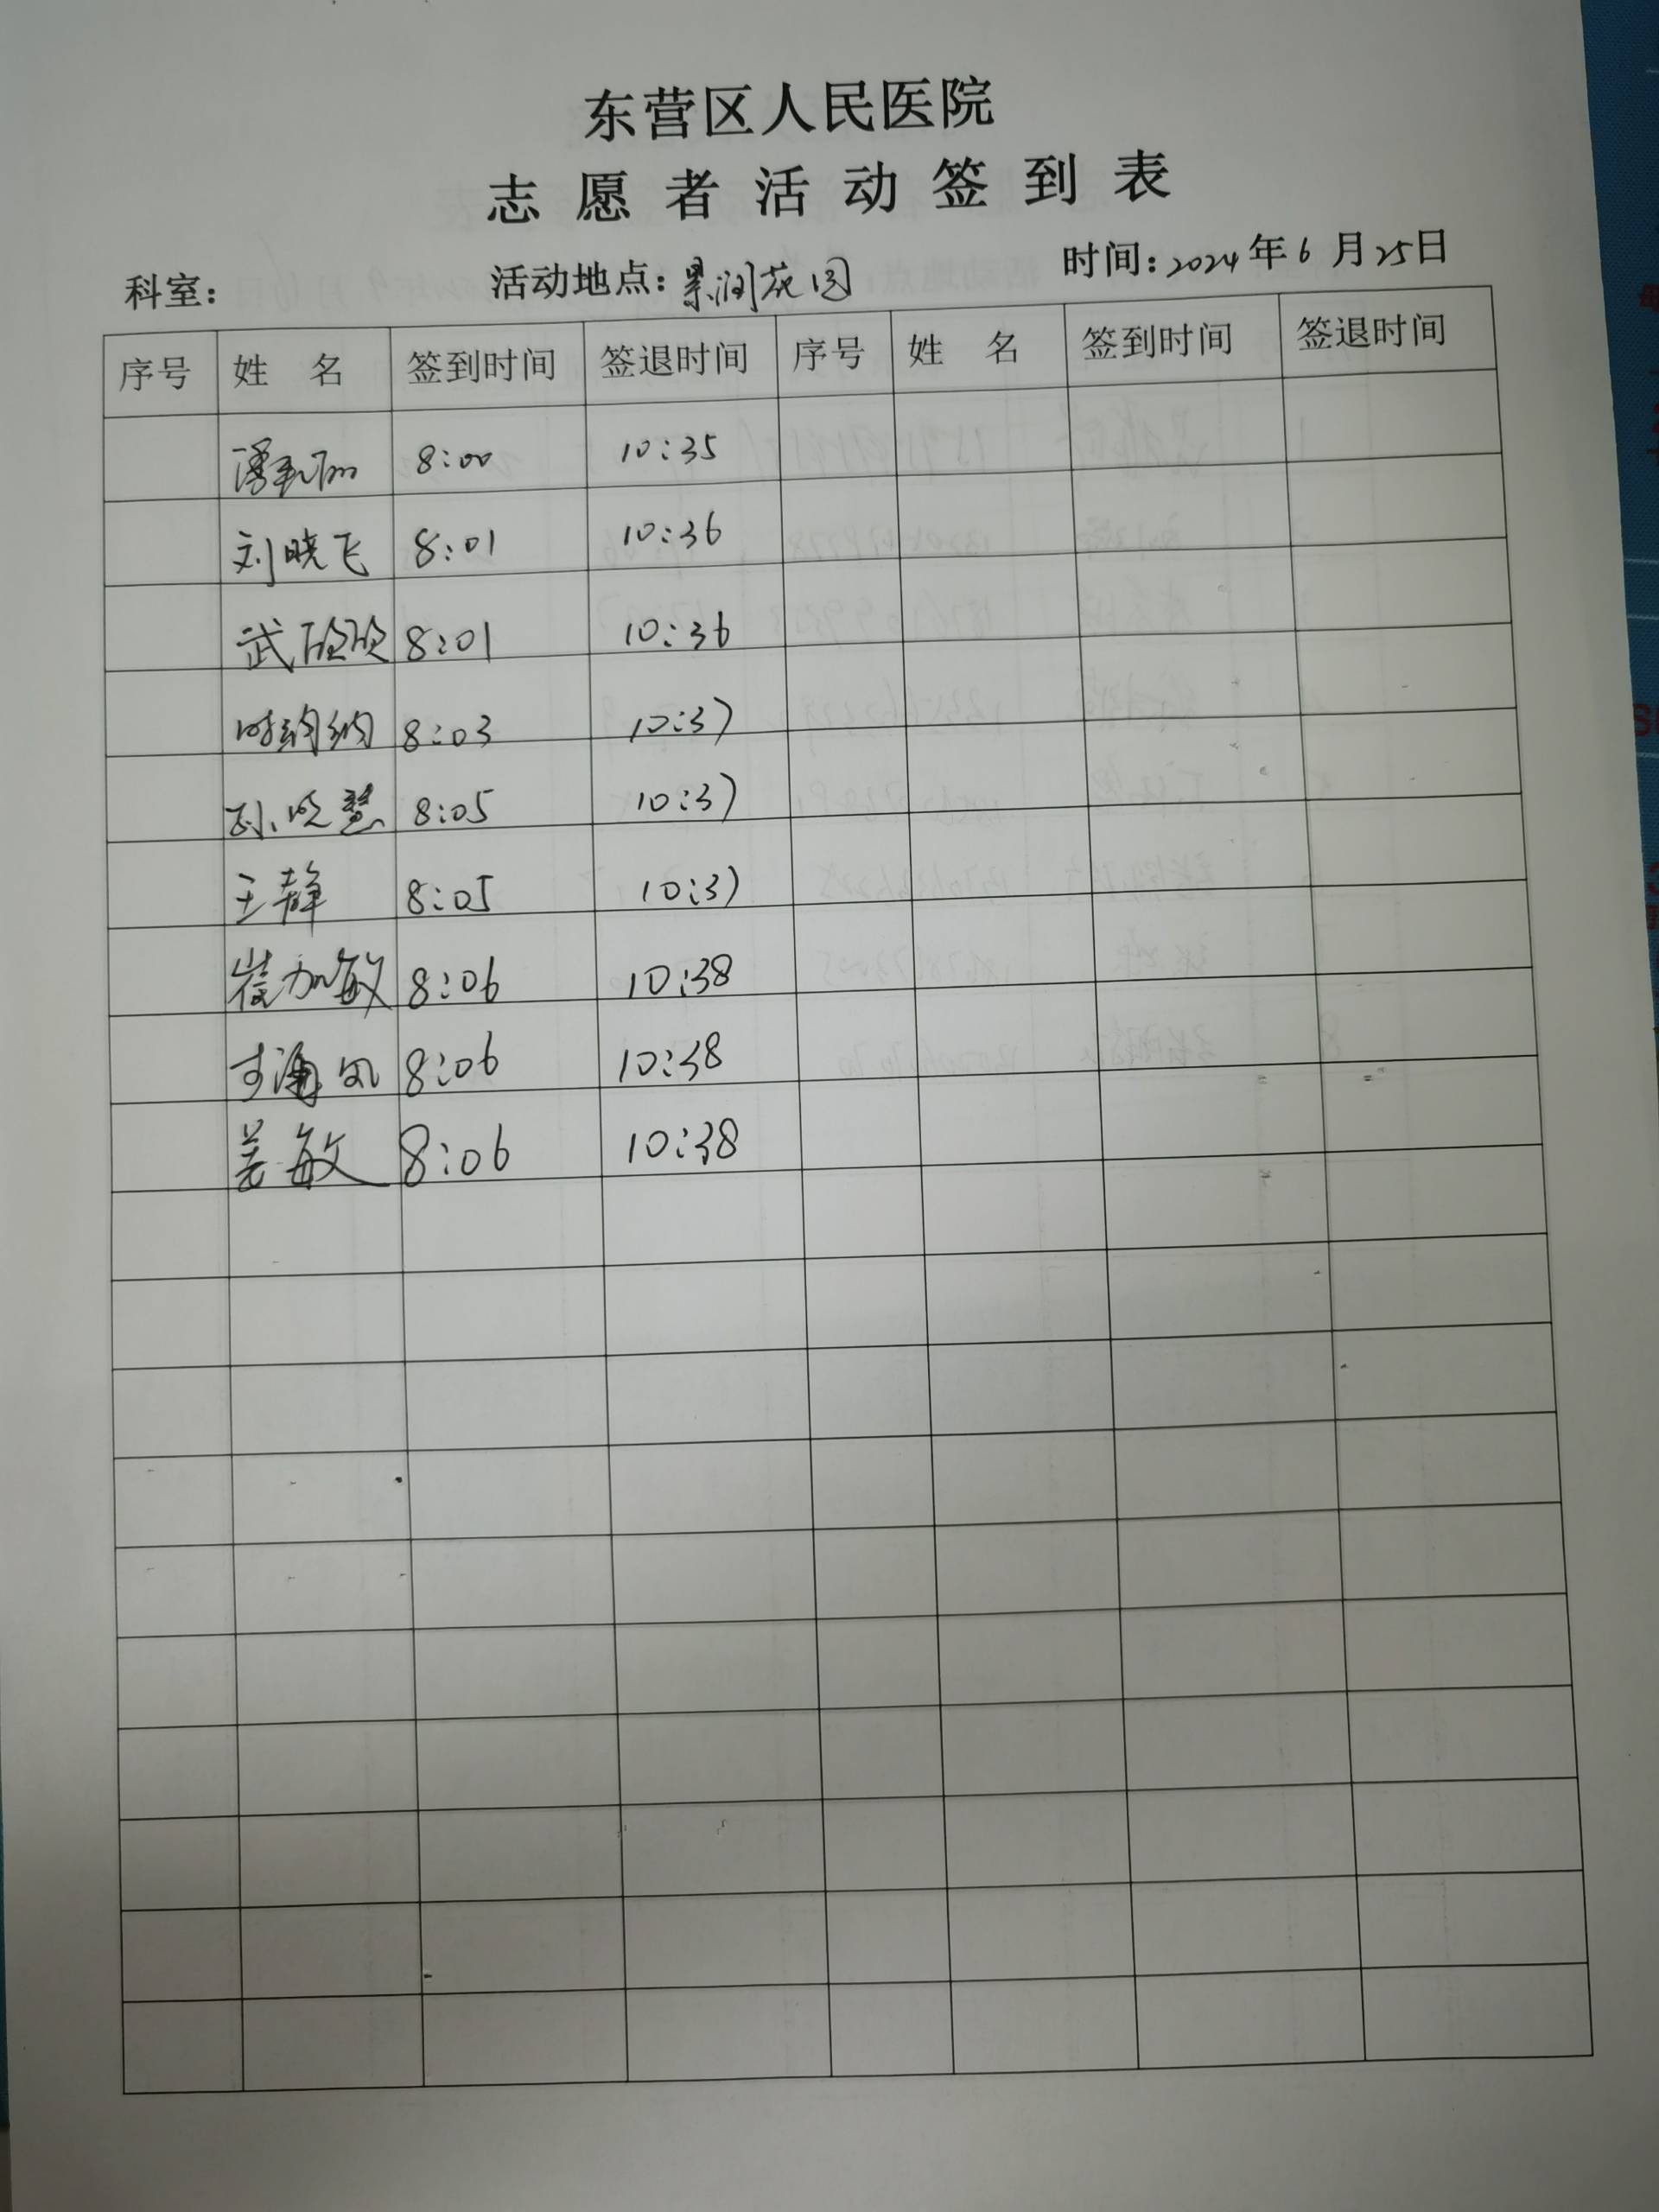 东营区人民医院
志愿者活动签到表
科室： 活动地点：景润花园 时间：2024年6月25日
序号 姓 名 签到时间 签退时间 序号 姓 名 签到时间 签退时间
8:00 10:35
刘晓飞 8:01 10:36
武 8:01 10:36
时纳纳 8:03 10:37
孙晓慧 8:05 10:37
王静 8:05 10:37
崔加敏 8:06 10:38
8:06 10:38
姜敏 8:06 10:38